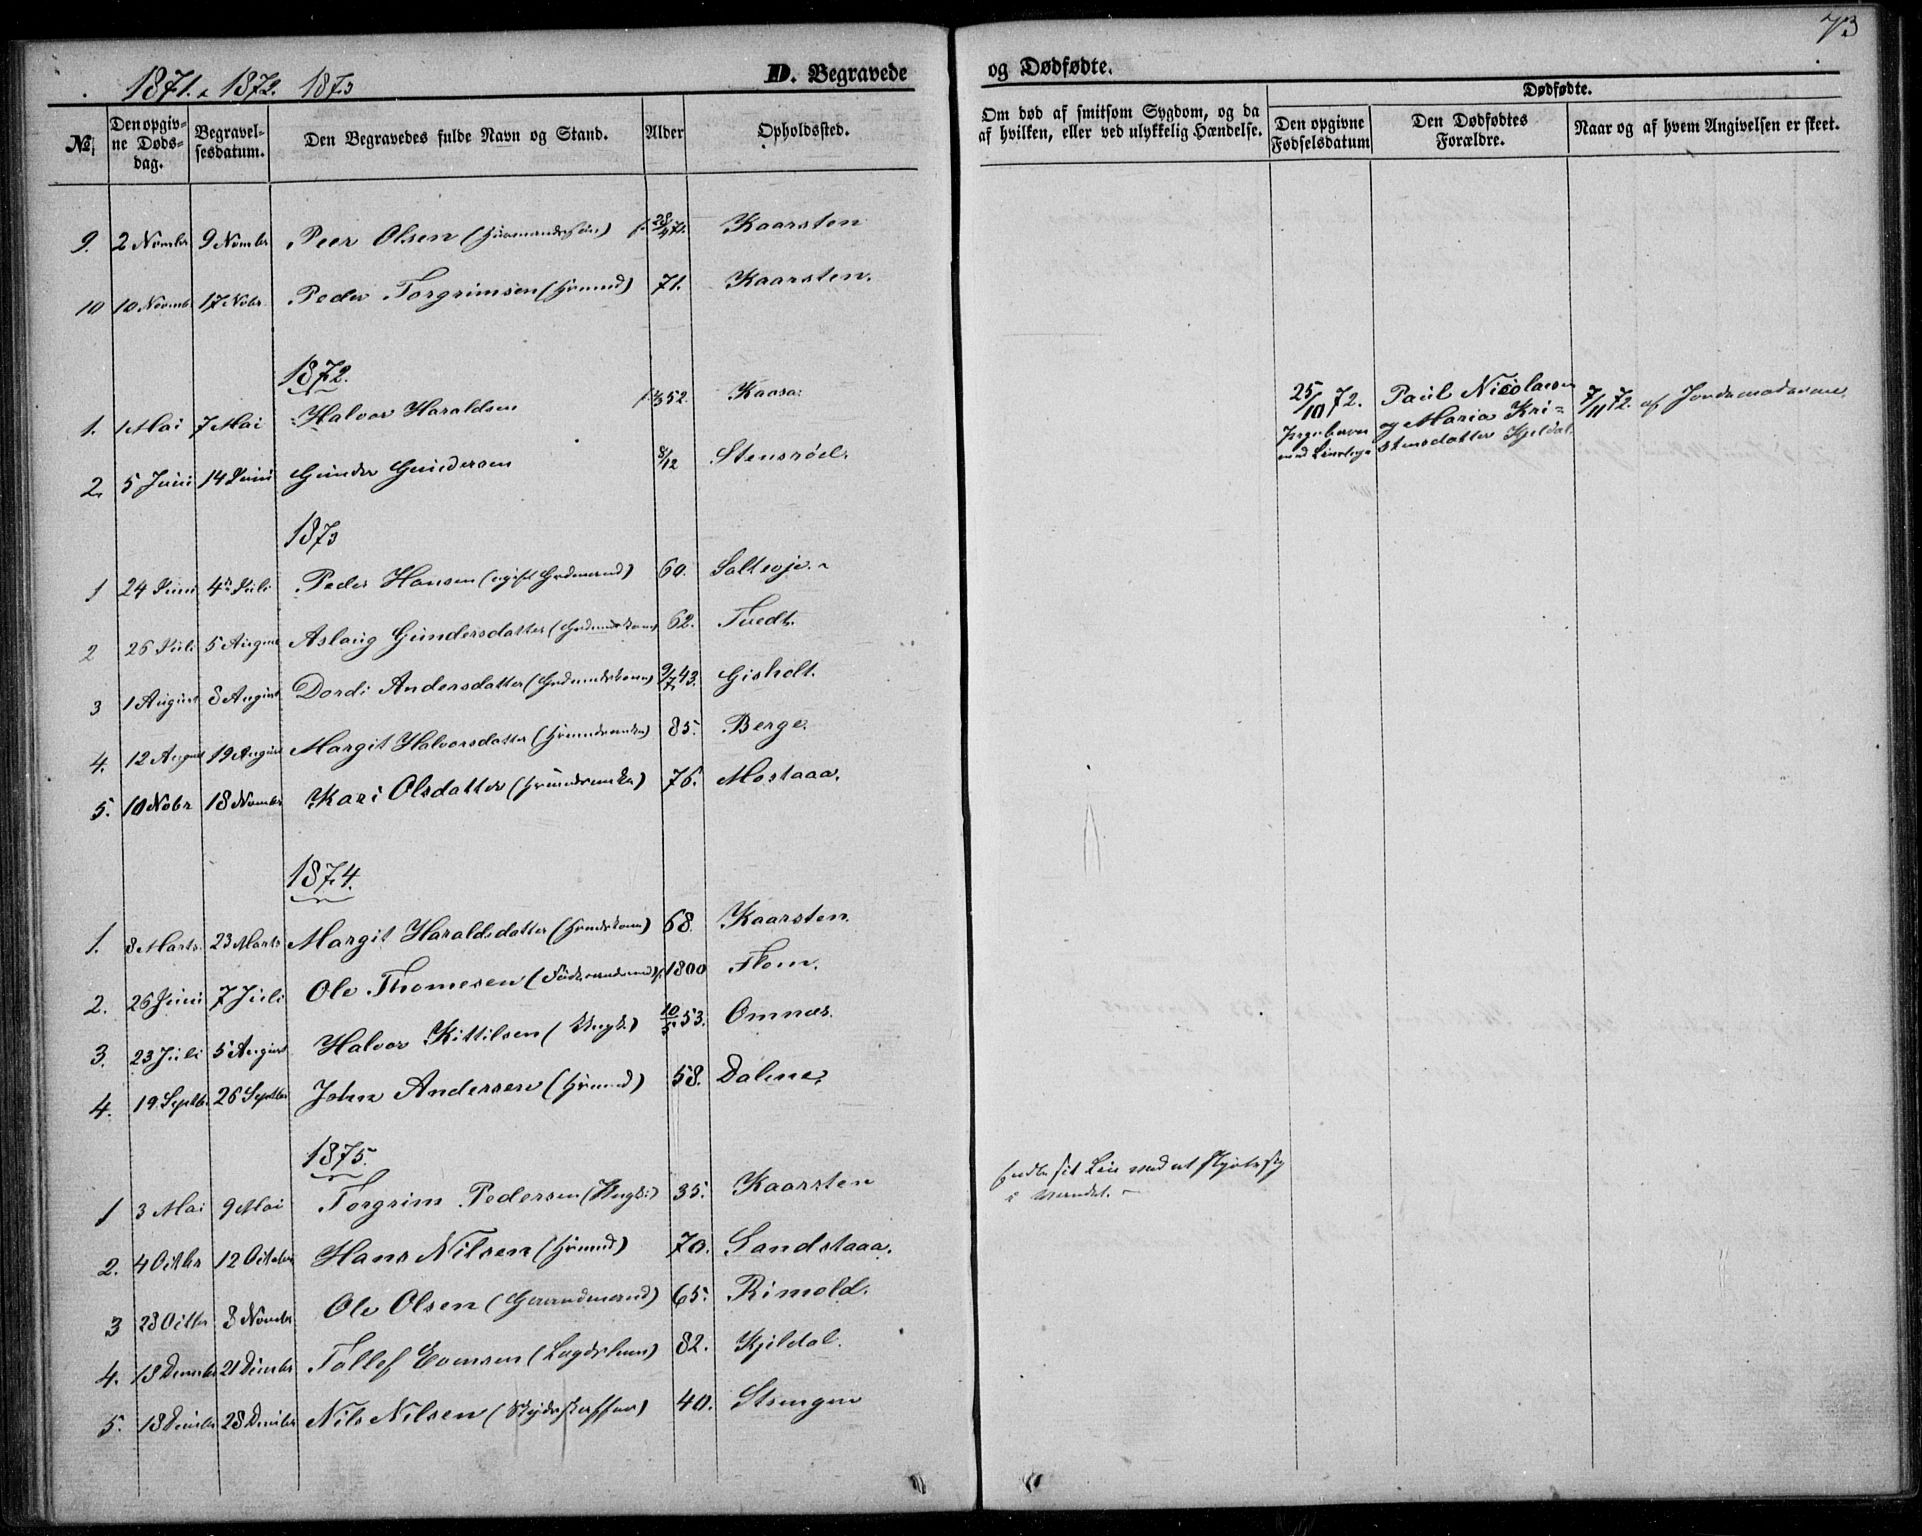 73
1871. 1872. 1873
D. Begravede og Dødfødte.
№
Den opgivne Døds-dag.
Begravelsesdatum.
Den Begravedes fulde Navn og Stand.
Alder
Opholdssted.
Om død af smitsom Sygdom, og da af hvilken, eller ved ulykkelig Hændelse.
Dødfødte.
Den opgivne Fødselsdatum
Den Dødfødtes Forældre.
Naar og af hvem Angivelsen er skeet.
9. 2 Nvmbr 9 Nvmbr Peer Olsen Kaarsten
10 10 Novmb 17 Nvbr Peder Torgrimsen 71. Kaarsten.
1872.
1. 1 Mai 7 Mai Halvor Haraldsen 52. Kaasa
25/10 72. Paul Nicolaisen 7/11 72. af Jordemoderen
og Maria Kri=
stensdatter Kjeldal.
2. 5 Juni 14 Juni Gunder Gundersen 8/12 Stensrød.
1873
1 24 Juni 4 Juli Peder Hansen 60. Salteoje.
2 26 Juli 5 August Aslaug Gundersdatter 62. Tvedt.
3 1 August 8 August Dordi Andersdatter 9/7 43. Gisholt.
4. 12 August 19 August Margit Halvorsdatter 85. Berge.
5. 10 Nobr 18 Novmbr Kari Olsdatter 76. Mostaaa.
1874.
1. 8 Marts. 23 Marts Margit Haraldsdatter 68. Kaarsten.
2. 26 Juni 7 Juli Ole Thomesen 1800 Flom.
3. 23 Juli 5 August Halvor Kittilsen (Ungk.) 10/5 53. Omnæs.
4. 19 Septbr. 26 Septbr John Andersen 58. Dalene.
1875.
1 3 Mai 9 Mai Torgrim Pedersen (Ungk:) 35. Kaarsten
endte sit Liv ved at skyde sig
i Munden.
2. 4 Octbr 12 October Hans Nilsen 70. Sandstaaa.
3 28 Octbr 8 Novbr Ole Olsen (Gaardmand) 65. Rimold.
4. 18 Decmbr 21 Decmbr Tollef Evensen (Lægdslem) 82. Kjildal.
5. 18 Decmbr 28 Decmbr Nils Nilsen (Skydsskaffer) 40. Strengen